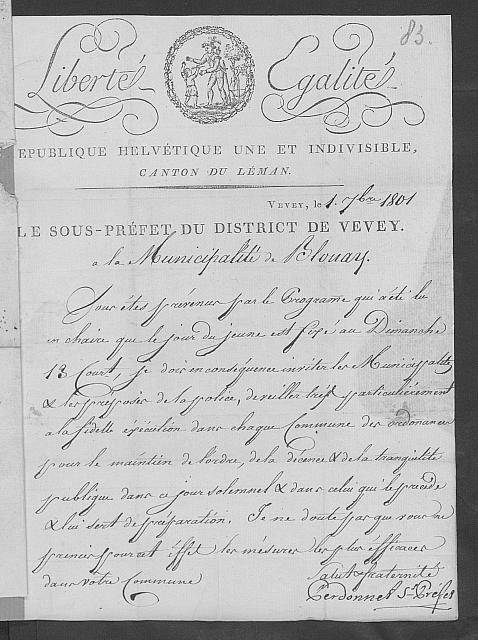 83.
Liberté Egalité
EPUBLIQUE HELVÉTIQUE UNE ET INDIVISIBLE,
CANTON DU LÉMAN.
VEVEY, le 1. 7bre 1801
LE SOUS-PRÉFET DU DISTRICT DE VEVEY.
a la Municipalité de Blonay.
Vous étes prévenus par le Programe qui a été lu
en chaire que le jour du jeune est fixé au Dimanche
13 Court, je dois en conséquence inviter les Municipalités
& les préposés de la police, de veiller très particulièrement
a la fidelle exécution dans chaque Commune des ordonances
pour le maintien de l'ordre, de la décence & de la tranquilité
publique dans ce jour solemnel & dans celui qui le précéde
& lui sert de préparation. Je ne doute pas que vous ne
preniés pour cet éffet les mésures les plus éfficaces
dans votre Commune
Salut & fraternité
Perdonnet Ss Préfet